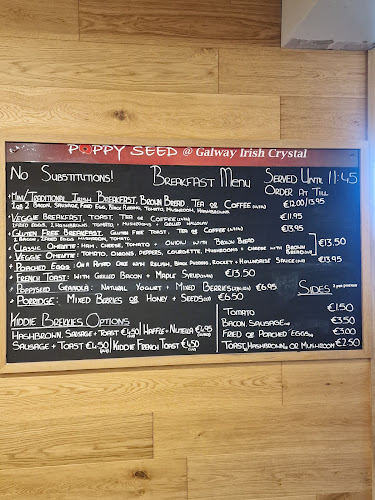 POPPY SEED @ Galway Irish Crystal
No Substitutions! Breakfast Menu Served Until 11:45
Order at Till
Mini/Traditional Irish Breakfast, Brown Bread Tea or Coffee €12.00/13.95
1 or 2 Bacon, Sausage, Fried Egg, Black Pudding, Tomato, Mushroom, Hashbrowns
Veggie Breakfast, Toast Tea or Coffee €11.95
2 Fried Eggs, 2 Hashbrowns, Tomato, Mushrooms + Grilled Halloumi
Gluten Free Breakfast: Gluten Free Toast, Tea or Coffee €13.95
2 Bacon, 2 Fried Eggs, Mushroom, Tomato
Classic Omelette: Ham, Cheese, Tomato + Onion with Brown Bread €13.50
Veggie Omelette: Tomato, Onions, Peppers, Courgette, Mushrooms + Cheese with Brown Bread
Poached Eggs: On a Potato Cake with Relish, Black Pudding, Rocket + Hollandaise Sauce €13.95
French Toast: With Grilled Bacon + Maple Syrup €13.50
Poppyseed Granola: Natural Yogurt + Mixed Berries €6.95
Porridge: Mixed Berries or Honey + Seeds €6.50
Sides:
Kiddie Brekkies Options
Tomato €1.50
Hashbrown, Sausage + Toast €4.50 | Waffle + Nutella €4.95
Bacon, Sausage €3.50
Sausage + Toast €4.50 | Kiddie French Toast €4.50
Fried or Poached Eggs €3.00
Toast, Hashbrowns or Mushroom €2.50